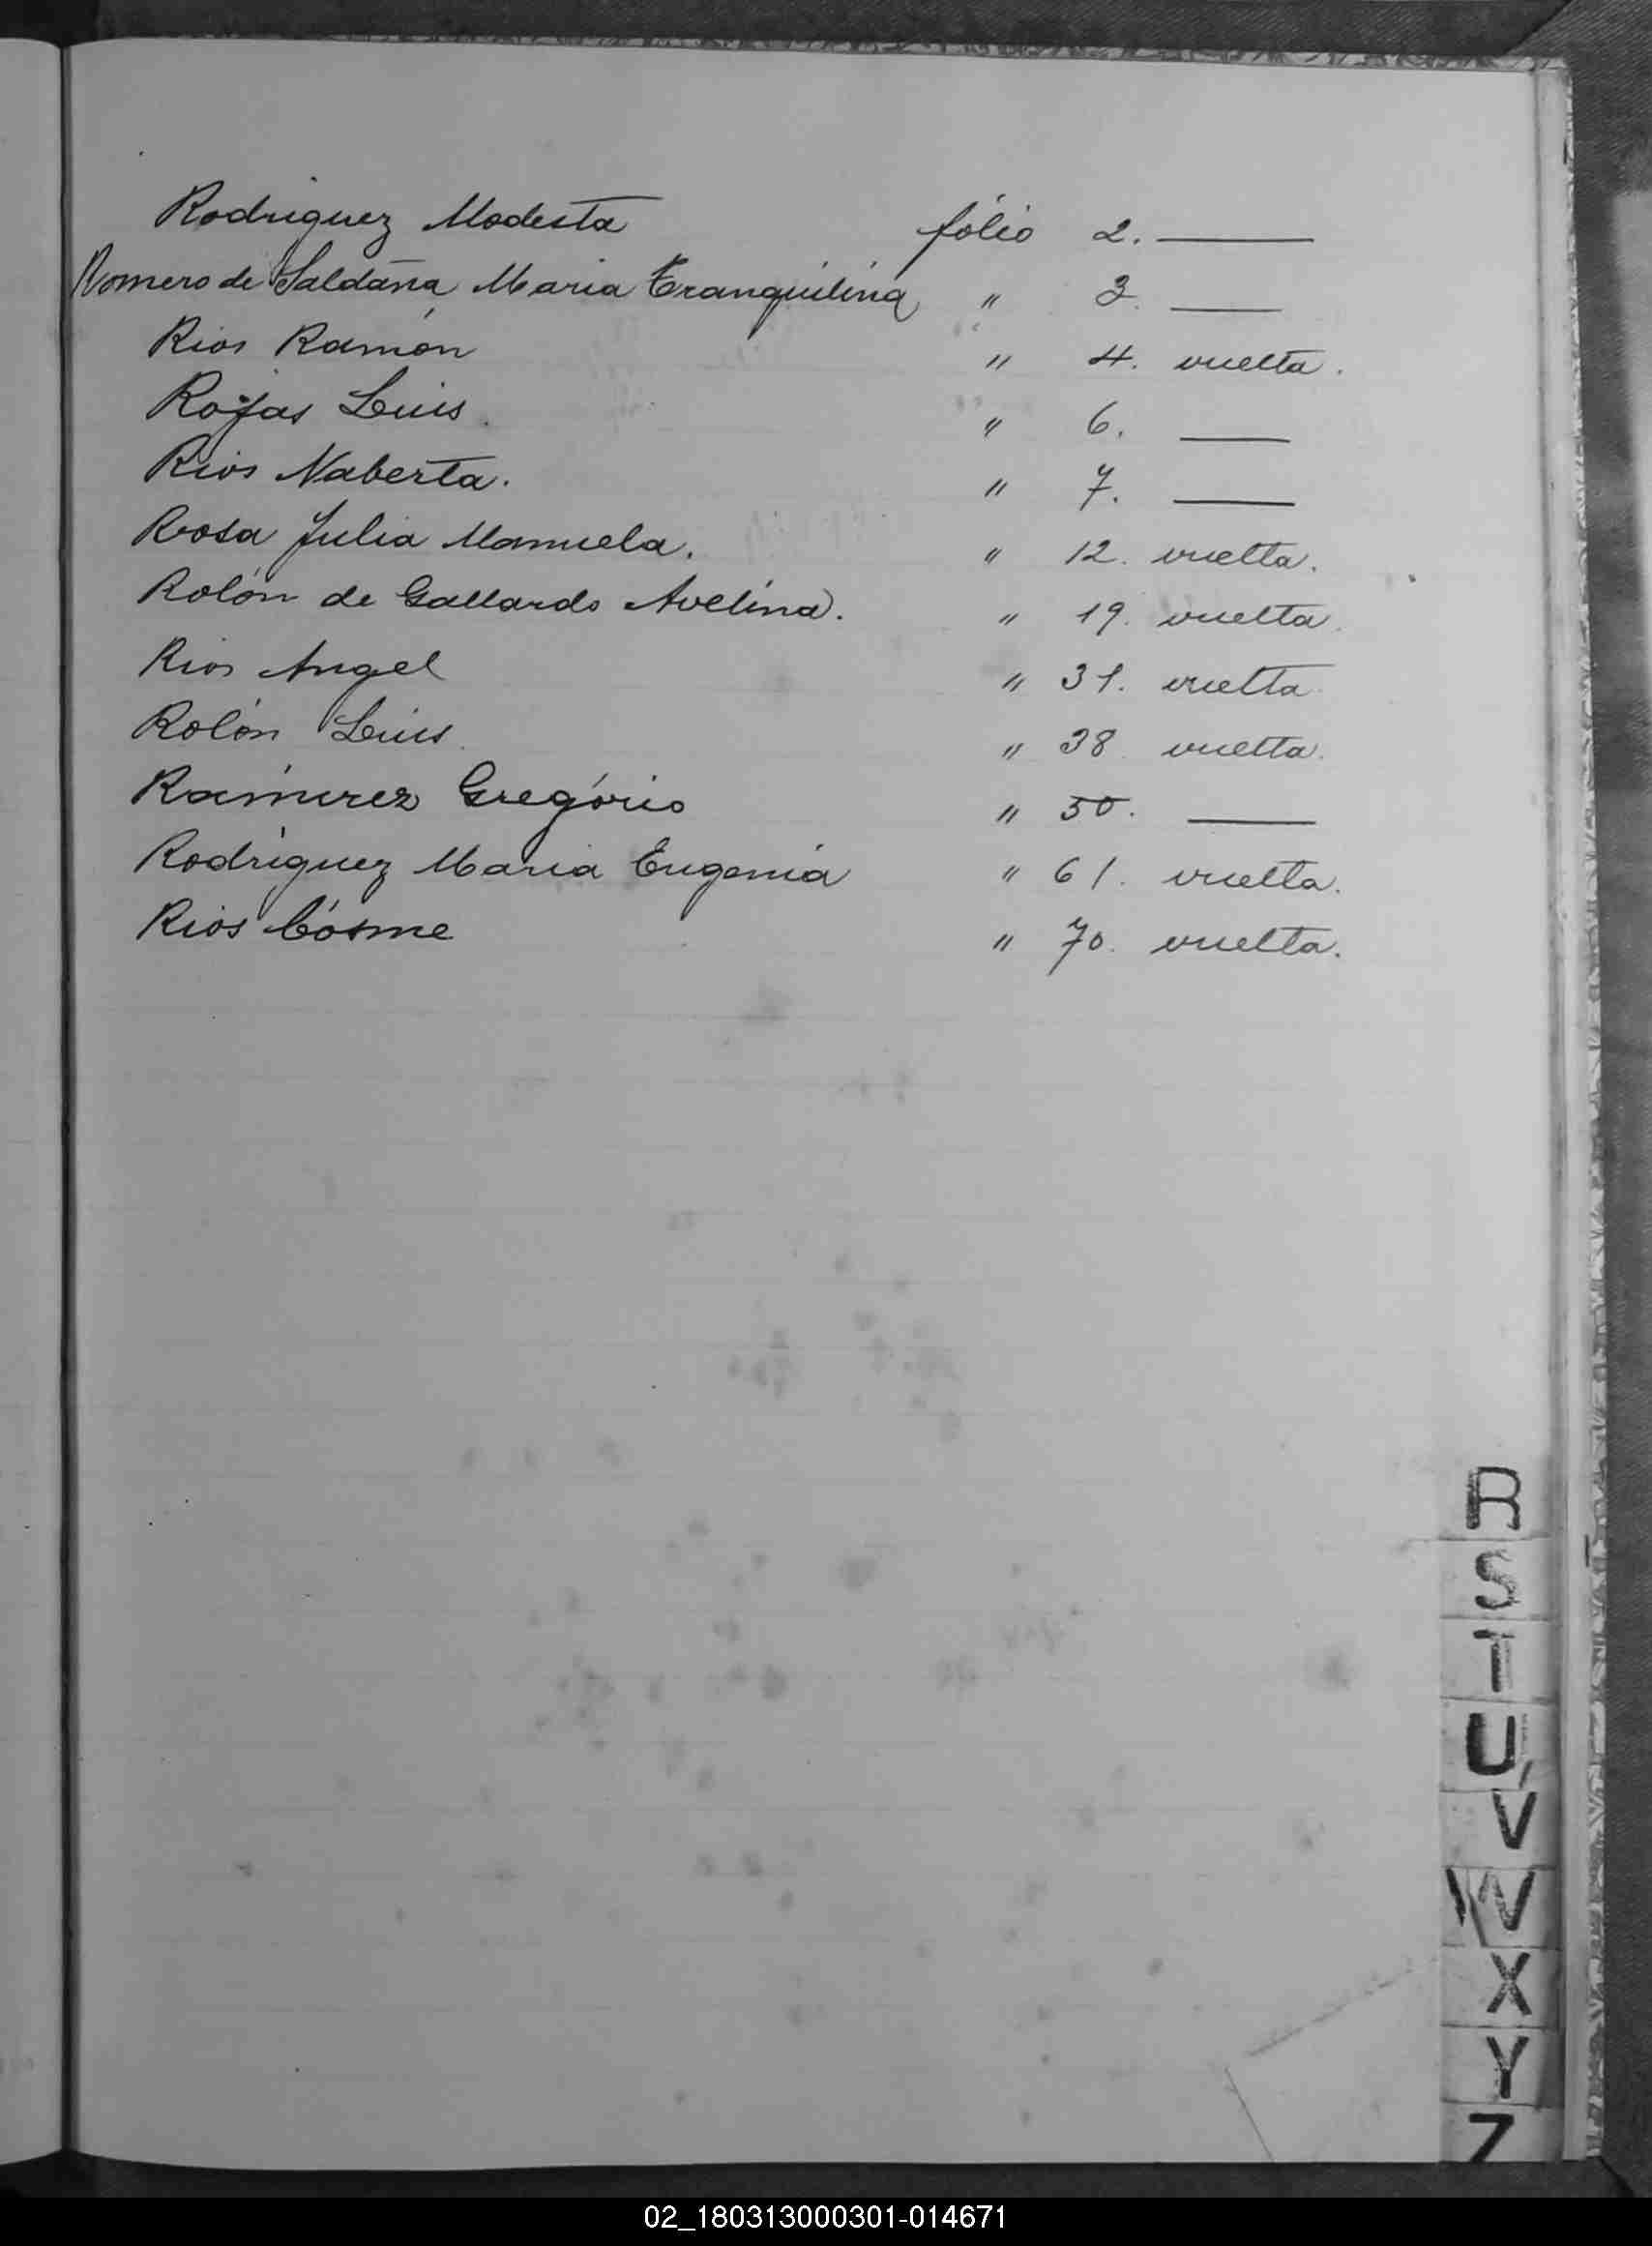 Rodriguez Modesta fólio 2. ——
Romero de Saldaña Maria Tranquilina " 3. ——
Rios Ramón " 4. vuelta.
Rojas Luis. " 6. ——
Rios Naberta. " 7. ——
Rosa Julia Manuela. " 12. vuelta.
Rolón de Gallardo Avelina. " 19. vuelta.
Rios Angel " 31. vuelta
Rolón Luis. " 38 vuelta.
Ramirez Gregório " 50. ——
Rodriguez Maria Eugenia " 61. vuelta.
Rios Cósme " 70. vuelta.
R
S
T
U
V
W
X
Y
Z
02_180313000301-014671